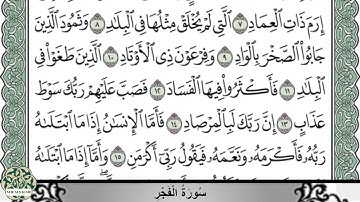 إِرَمَ ذَاتِ ٱلْعِمَادِ ٧ ٱلَّتِى لَمْ يُخْلَقْ مِثْلُهَا فِى ٱلْبِلَٰدِ ٨ وَثَمُودَ ٱلَّذِينَ
جَابُوا۟ ٱلصَّخْرَ بِٱلْوَادِ ٩ وَفِرْعَوْنَ ذِى ٱلْأَوْتَادِ ١٠ ٱلَّذِينَ طَغَوْا۟ فِى
ٱلْبِلَٰدِ ١١ فَأَكْثَرُوا۟ فِيهَا ٱلْفَسَادَ ١٢ فَصَبَّ عَلَيْهِمْ رَبُّكَ سَوْطَ
عَذَابٍ ١٣ إِنَّ رَبَّكَ لَبِٱلْمِرْصَادِ ١٤ فَأَمَّا ٱلْإِنسَٰنُ إِذَا مَا ٱبْتَلَىٰهُ
رَبُّهُۥ فَأَكْرَمَهُۥ وَنَعَّمَهُۥ فَيَقُولُ رَبِّىٓ أَكْرَمَنِ ١٥ وَأَمَّآ إِذَا مَا ٱبْتَلَىٰهُ
سُورَةُ الْفَجْر